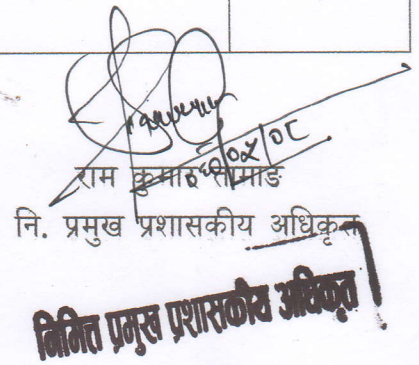 राम कुमार
नि. प्रमुख प्रशासकीय अधिकृत
निमित्त प्रमुख प्रशासकीय अधिकृत